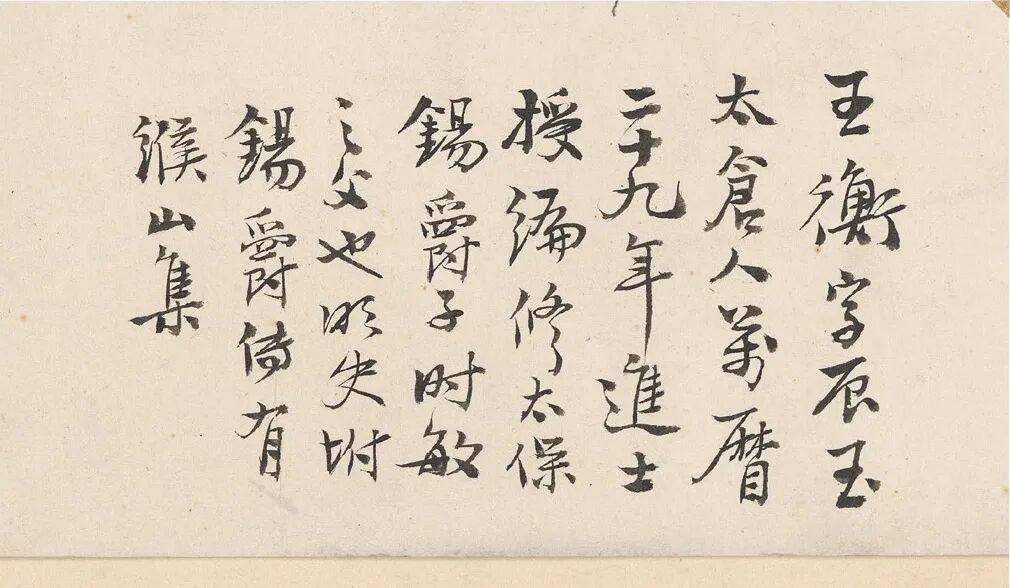 王衡字辰玉
太倉人萬曆
二十九年進士
授編修太保
錫爵子时敏
之父也明史坿
錫爵傳有
緱山集